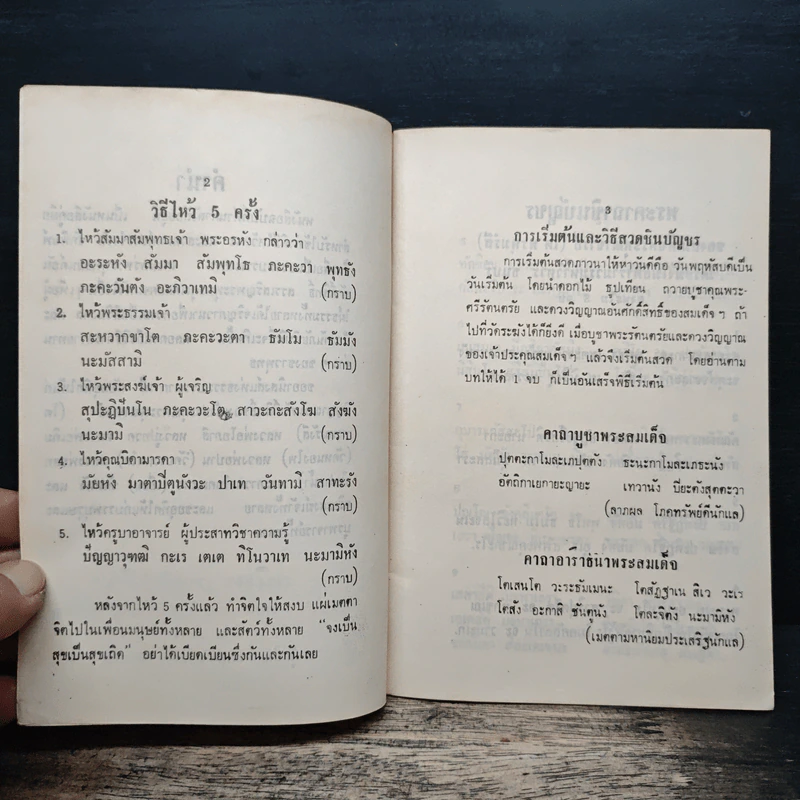 2
วิธีไหว้ 5 ครั้ง
1. ไหว้สัมมาสัมพุทธเจ้า พระอรหัง กล่าวว่า
อะระหัง สัมมา สัมพุทโธ ภะคะวา พุทธัง
ภะคะวันตัง อะภิวาเทมิ (กราบ)
2. ไหว้พระธรรมเจ้า
สะหวากขาโต ภะคะวะตา ธัมโม ธัมมัง
นะมัสสามิ (กราบ)
3. ไหว้พระสงฆ์เจ้า ผู้เจริญ
สุปะฏิปันโน ภะคะวะโต สาวะกะสังโฆ สังฆัง
นะมามิ (กราบ)
4. ไหว้คุณบิดามารดา
มัยหัง มาตาปิตูนังวะ ปาเท วันทามิ สาทะรัง
(กราบ)
5. ไหว้ครูบาอาจารย์ ผู้ประสาทวิชาความรู้
ปัญญาวุฑฒิ กะเร เตเต ทิโนวาเท นะมามิหัง
(กราบ)
หลังจากไหว้ 5 ครั้งแล้ว ทำจิตใจให้สงบ แผ่เมตตา
จิตไปในเพื่อนมนุษย์ทั้งหลาย และสัตว์ทั้งหลาย "จงเป็น
สุขเป็นสุขเถิด" อย่าได้เบียดเบียนซึ่งกันและกันเลย
3
การเริ่มต้นและวิธีสวดชินบัญชร
การเริ่มต้นสวดภาวนาให้หาวันดีคือ วันพฤหัสบดีเป็น
วันเริ่มต้น โดยนำดอกไม้ ธูปเทียน ถวายบูชาคุณพระ-
ศรีรัตนตรัย และดวงวิญญาณอันศักดิ์สิทธิ์ของสมเด็จฯ ถ้า
ไปที่วัดระฆังได้ก็ยิ่งดี เมื่อบูชาพระรัตนตรัยและดวงวิญญาณ
ของเจ้าประคุณสมเด็จฯ แล้วจึงเริ่มต้นสวด โดยอ่านตาม
บทให้ได้ 1 จบ ก็เป็นอันเสร็จพิธีเริ่มต้น
คาถาบูชาพระสมเด็จ
ปุตตะกาโมละเภปุตตัง ธะนะกาโมละเภธะนัง
อัตถิกาเยกายะญายะ เทวานัง ปิยะตังสุตตะวา
(ลาภผล โภคทรัพย์ดีนักแล)
คาถาอาราธนาพระสมเด็จ
โตเสนโต วะระธัมเมนะ โตสัฏฐาเน สิเว วะเร
โตสัง อะกาสิ ชันตูนัง โตละจิตตัง นะมามิหัง
(เมตตามหานิยมประเสริฐนักแล)